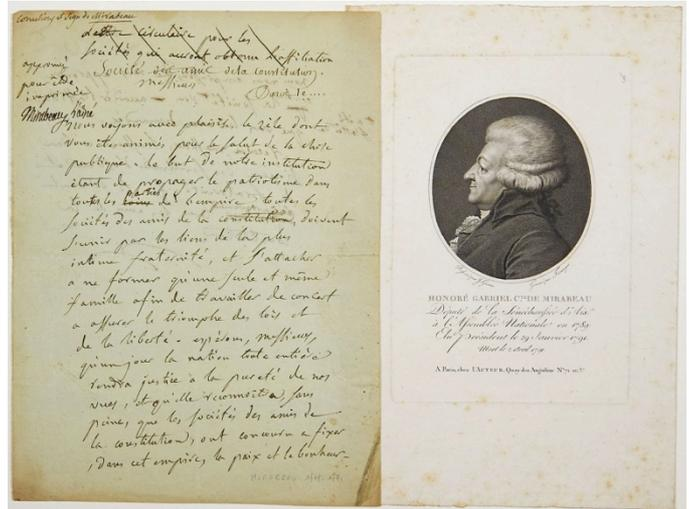 corrections & sign. de Mirabeau
circulaire pour les
Sociétés qui auront obtenu l'affiliation
Société des amis de la constitution.
Messieurs
Paris le....
approuvé
pour être
imprimée
Mirabeau l'aîné
Nous voyons avec plaisir le zèle dont
vous êtes animés pour le salut de la chose
publique. le but de notre institution
étant de propager le patriotisme dans
toutes les parties de l'empire, toutes les
Sociétés des amis de la constitution, doivent
s'unir par les liens de la plus
intime fraternité, et s'attacher
a ne former qu'une seule et même
famille afin de travailler de concert
a assurer le triomphe des loix et
de la liberté. espérons, messieurs,
qu'un jour la nation toute entière
rendra justice a la pureté de nos
vues, et qu'elle reconnoitra sans
peine, que les sociétés des amis de
la constitution, ont concouru a fixer
dans cet empire, la paix et le bonheur-
HONORÉ GABRIEL C.TE DE MIRABEAU
Député de la Sénéchaussée d'Aix
à l'Assemblée Nationale en 1789
Elu Président le 29 Janvier 1791
Mort le 2 avril 1791
A Paris, chez l'AUTEUR, Quay des Augustins N.º 71 au 3.e